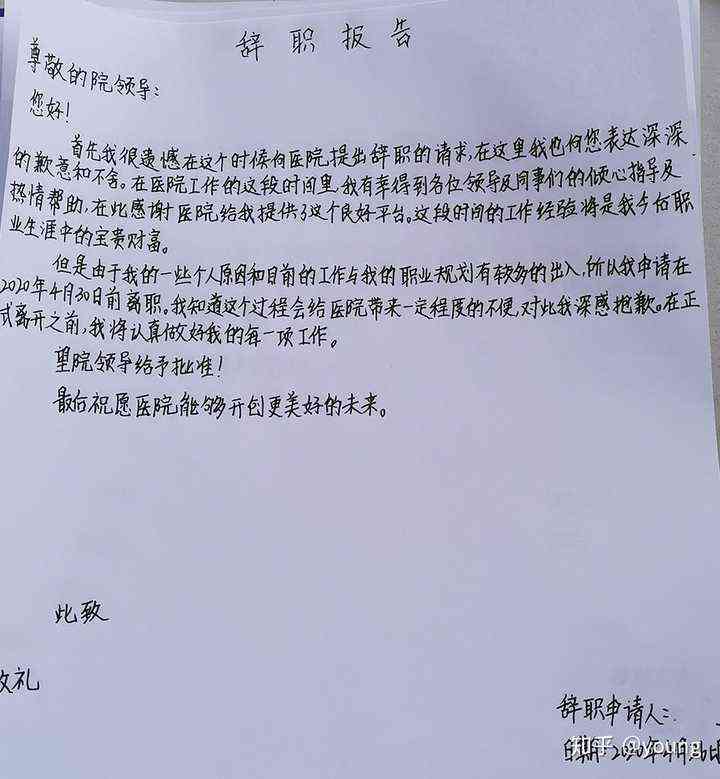 辞职报告
尊敬的院领导：
您好！
首先我很遗憾在这个时候向医院提出辞职的请求，在这里我也向您表达深深
的歉意和不舍。在医院工作的这段时间里，我有幸得到各位领导及同事们的倾心指导及
热情帮助，在此感谢医院给我提供了这个良好平台。这段时间的工作经验将是我今后职
业生涯中的宝贵财富。
但是由于我的一些个人原因和目前的工作与我的职业规划有较多的出入，所以我申请在
2020年4月30日前离职。我知道这个过程会给医院带来一定程度的不便，对此我深感抱歉。在正
式离开之前，我将认真做好我的每一项工作。
望院领导给予批准！
最后祝愿医院能够开创更美好的未来。
此致
敬礼
辞职申请人：
日期：2020年4月
知乎 @young